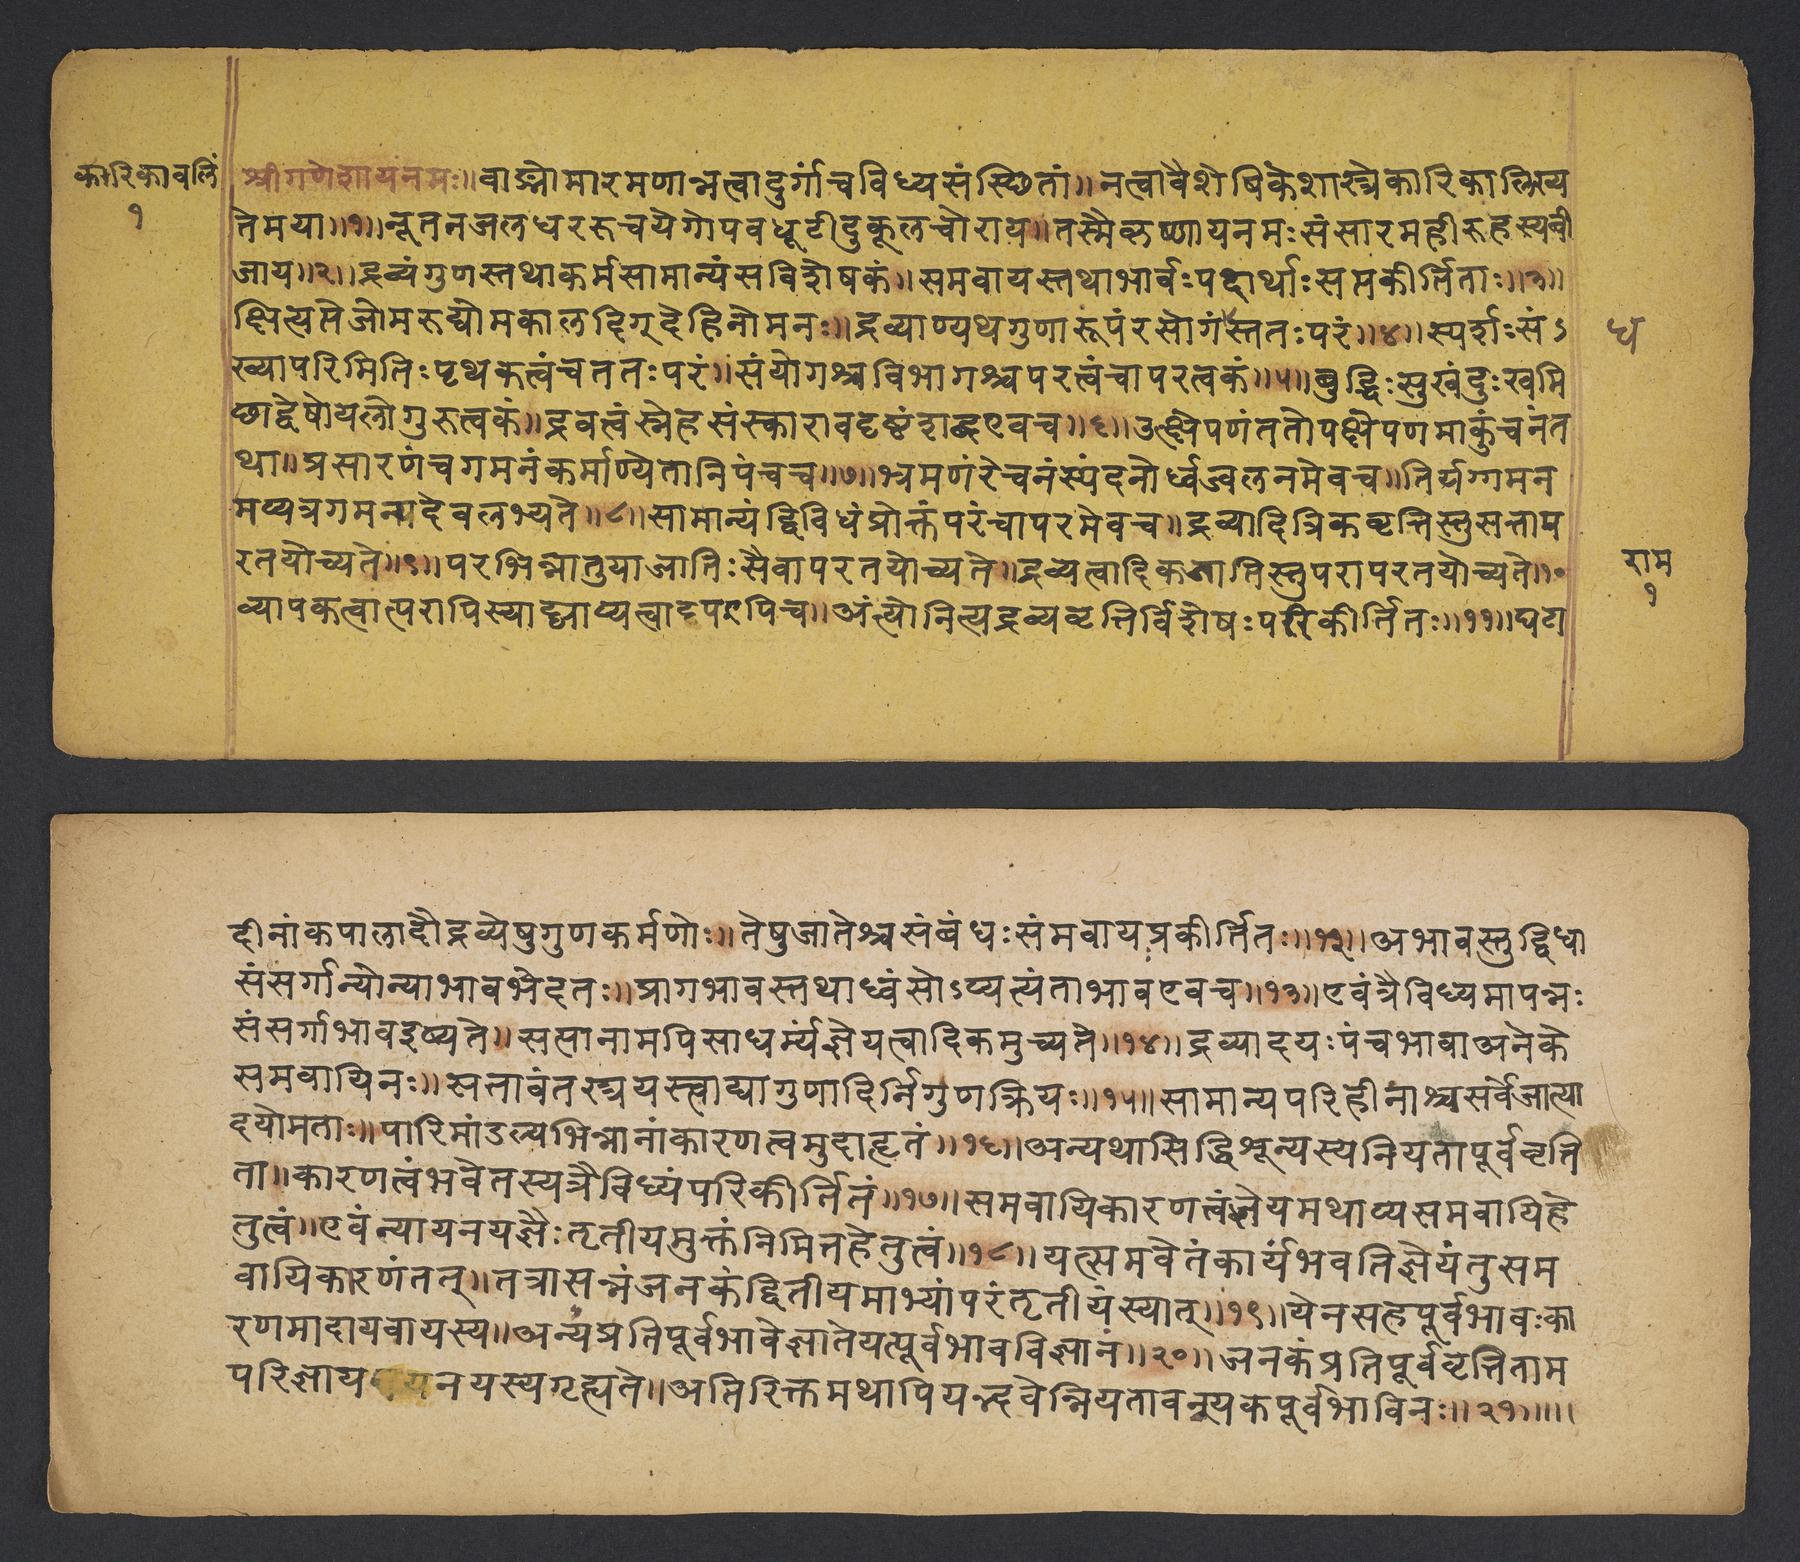 कारिकावलिं
१
श्रीगणेशायनमः॥वाङ्मोमारमणान्नत्वादुर्गांचविंध्यसंस्छितां॥नत्वावैशेषिकेशास्त्रेकारिकालिख्य
तेमया॥१॥नूतनजलधररूचयेगोपवधूटीदुकूलचौराय॥तस्मैकृष्णायनमःसंसारमहीरूहस्यबी
जाय॥२॥द्रव्यंगुणस्तथाकर्मसामान्यंसविशेषकं॥समवायस्तथाभावःपदार्थाःसप्तकीर्त्तिताः॥३॥
क्षित्यप्तेजोमरूद्योमकालदिग्देहिनोमनः॥द्रव्याण्यथगुणारूपंरसोगंस्ततःपरं॥४॥स्पर्शःसंऽ
ध
ख्यापरिमितिःपृथक्त्वंचततःपरं॥संयोगश्चविभागश्चपरत्वंचापरत्वकं॥५॥बुद्धिःसुखंदुःखमि
छाद्वेषोयत्नौगुरूत्वकं॥द्रवत्वंस्नेहसंस्कारावदृष्टंशब्दएवच॥६॥उत्क्षेपणंततोपक्षेपणमाकुंचनंत
था॥प्रसारणंचगमनंकर्माण्येतानिपंचच॥७॥भ्रमणंरेचनंस्यंदनोर्ध्वज्वलनमेवच॥तिर्यग्गमन
मप्यत्रगमनादेवलभ्यते॥८॥सामान्यंद्विविधंप्रोक्तंपरंचापरमेवच॥द्रव्यादित्रिकवृत्तिस्तुसत्ताप
रतयोच्यते॥९॥परभिन्नातुयाजातिःसैवापरतयोच्यते॥द्रव्यत्वादिकजातिस्तुपरापरतयोच्यते॥१०
राम
१
व्यापकत्वात्परापिस्याद्व्याप्यत्वादपरापिच॥अंत्योनित्यद्रव्यवृत्तिर्विशेषःपरिकीर्तितः॥११॥घटा
दीनांकपालादौद्रव्येषुगुणकर्मणोः॥तेषुजातेश्चसंबंधःसंमवायप्रकीर्त्तितः॥१२॥अभावस्तुद्विधा
संसर्गान्योन्याभावभेदतः॥प्रागभावस्तथाध्वंसोऽप्यत्यंताभावएवच॥१३॥एवंत्रैविध्यमापन्नः
संसर्गाभावइष्यते॥सप्तानामपिसाधर्म्यंज्ञेयत्वादिकमुच्यते॥१४॥द्रव्यादयःपंचभावाअनेके
समवायिनः॥सत्तावंतस्त्रयस्त्वाद्यागुणादिर्निगुणक्रियः॥१५॥सामान्यपरिहीनाश्चसर्वेजात्या
दयोमताः॥पारिमांडल्यभिन्नानांकारणत्वमुदाहृतं॥१६॥अन्यथासिद्धिशून्यस्यनियतापूर्ववृत्ति
ता॥कारणत्वंभवेतस्यत्रैविध्यंपरिकीर्त्तितं॥१७॥समवायिकारणत्वंज्ञेयमथाप्यसमवायिहे
तुत्वं॥एवंन्यायनयज्ञैःतृतीयमुक्तंनिमित्तहेतुत्वं॥१८॥यत्समवेतंकार्यंभवतिज्ञेयंतुसम
वायिकारणंतत्॥तत्रासन्नंजनकंद्वितीयमाभ्यांपरंतृतीयंस्यात्॥१९॥येनसहपूर्वभावःका
रणमादायवायस्य॥अन्यंप्रतिपूर्वभावेज्ञातेयत्पूर्वभावविज्ञानं॥२०॥जनकंप्रतिपूर्ववृत्तिताम
परिज्ञाय नयस्यगृह्यते॥अतिरिक्तमथापियद्भवेन्नियतावन्यूयकपूर्वभाविनः॥२१॥॥॥